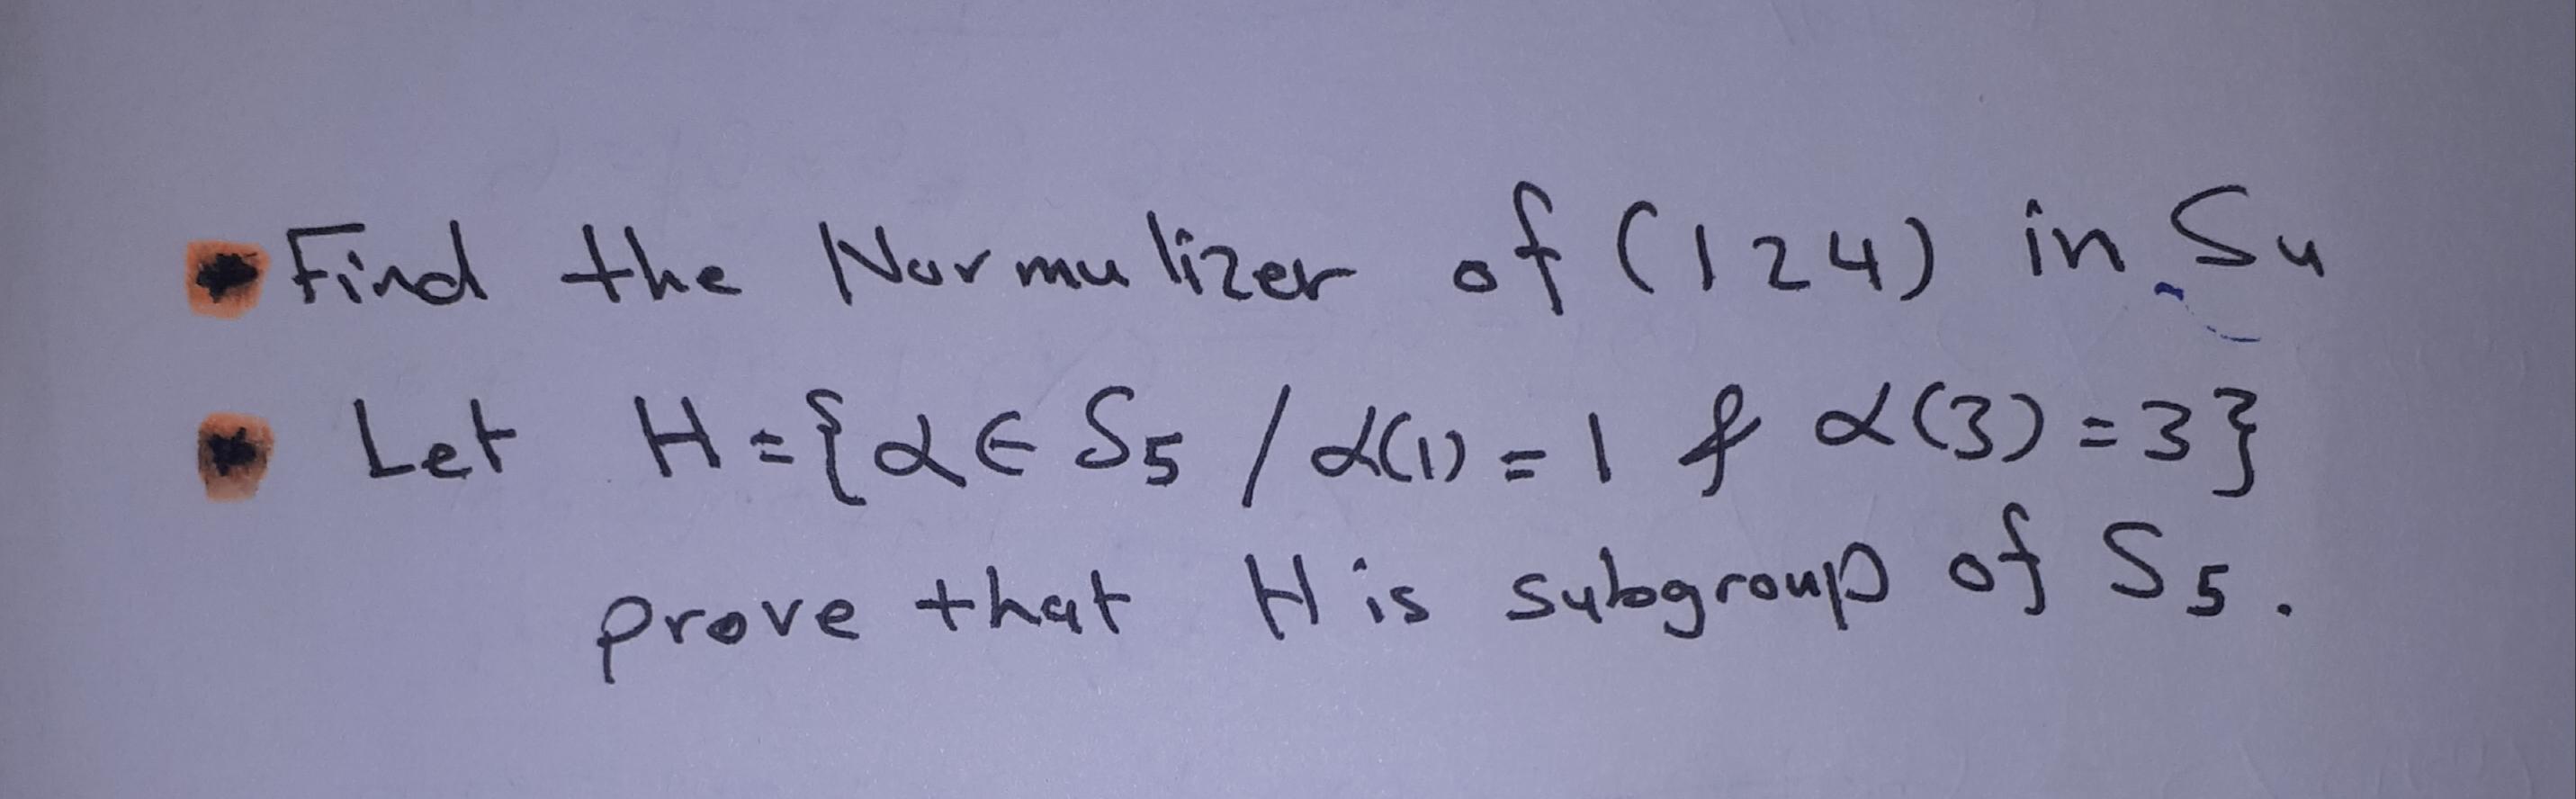 Find the Normulizer of (124) in S4
Let H={α∈ S5 / α(1) = 1 & α(3) = 3}
prove that H is subgroup of S5.